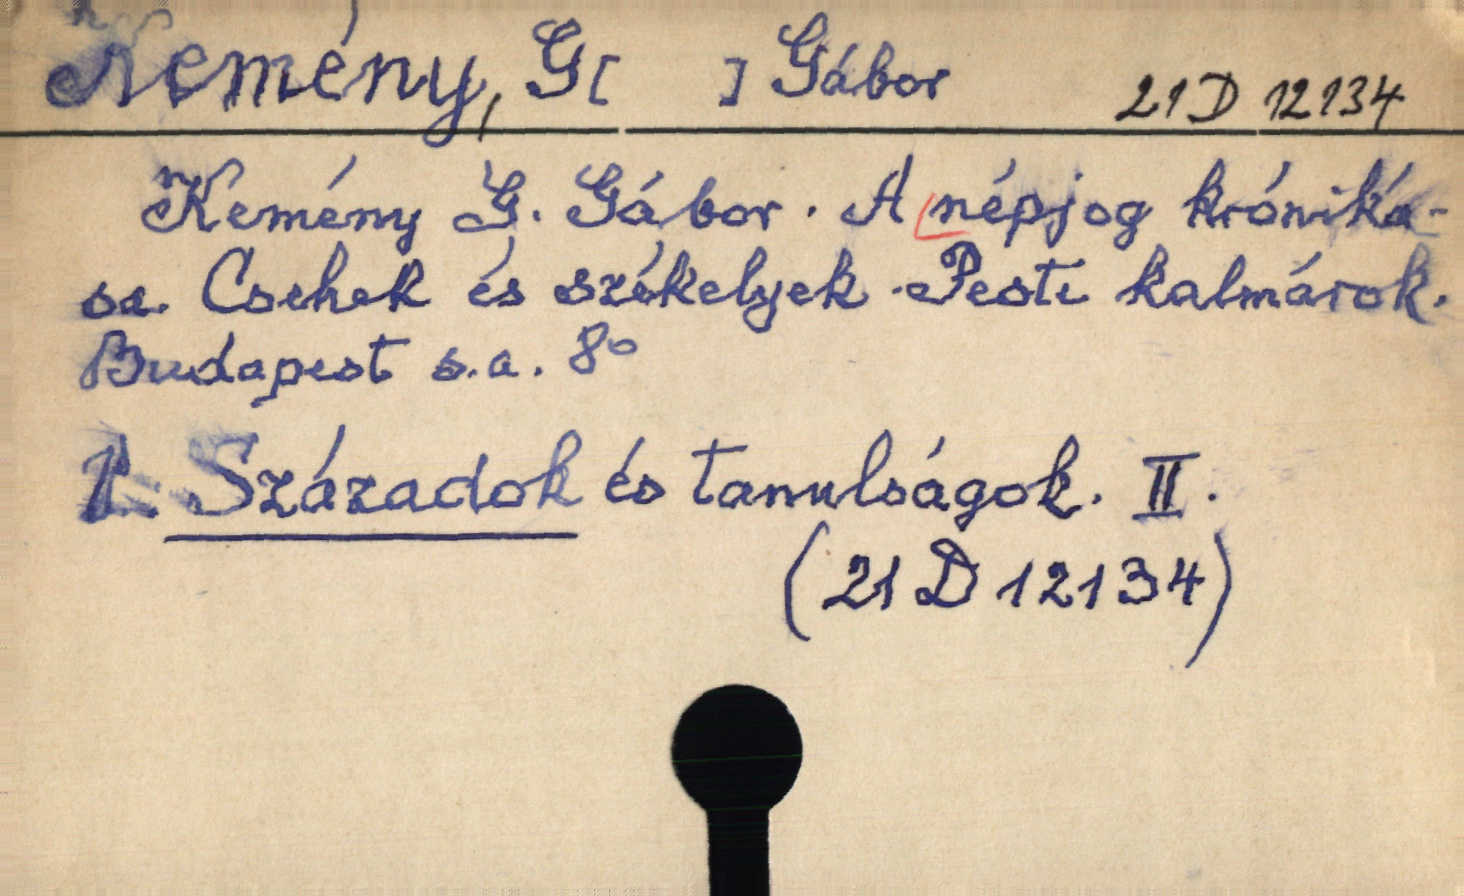 Kemény, G[ ] Gábor 21 D 12134
Kemény G. Gábor. A népjog króniká-
sa. Csehek és székelyek. Pesti kalmárok.
Budapest s.a. 8°
1. Századok és tanulságok. II.
(21 D 12134)